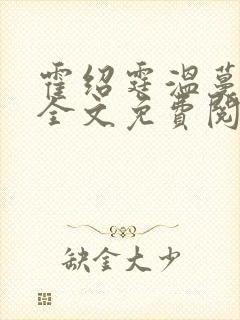 霍绍霆温蔓
全文免费阅
缺金大少